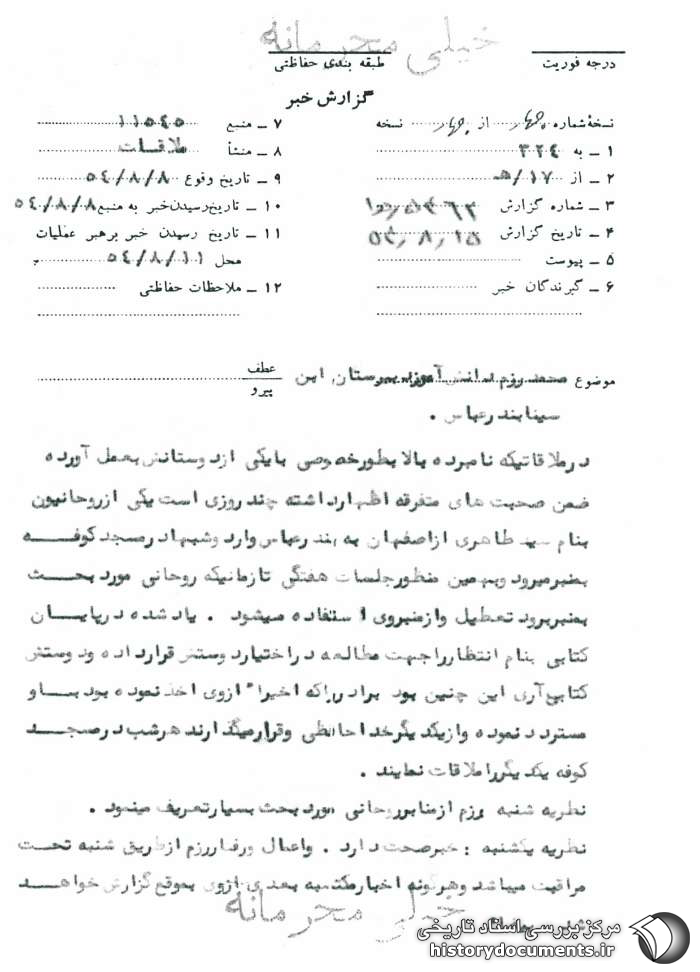 خیلی محرمانه
درجه فوریت
طبقه بندی حفاظتی
گزارش خبر
نسخهٔ شماره چهار از چهار نسخه
۱ ـ به ۳۲۴
۲ ـ از ۱۷/هـ
۳ ـ شماره گزارش
۴ ـ تاریخ گزارش ۵۴/۸/۱۵
۵ ـ پیوست
۶ ـ گیرندگان خبر
۷ ـ منبع ۱۱۵۴۵
۸ ـ منشأ ملاقات
۹ ـ تاریخ وقوع ۵۴/۸/۸
۱۰ ـ تاریخ رسیدن خبر به منبع ۵۴/۸/۸
۱۱ ـ تاریخ رسیدن خبر برهبر عملیات
محل ۵۴/۸/۱۱
۱۲ ـ ملاحظات حفاظتی
موضوع محمد رزم دانش آموز دبیرستان ابن
سینا بندرعباس .
عطف
پیرو
درملاقاتیکه نامبرده بالا بطورخصوصی با یکی ازدوستانش بعمل آورده
ضمن صحبت های متفرقه اظهارداشته چند روزی است یکی ازروحانیون
بنام سید طاهری ازاصفهان به بندرعباس وارد وشبها درمسجد کوفه
بمنبرمیرود وبهمین منظورجلسات هفتگی تازمانیکه روحانی مورد بحث
بمنبربرود تعطیل وازمنبروی استفاده میشود . یاد شده درپایان
کتابی بنام انتظارراجهت مطالعه دراختیاردوستش قرارداده ودوستش
کتاب آری این چنین بود برادرراکه اخیراً ازوی اخذ نموده بود باو
مسترد نموده وازیکدیگرخداحافظی وقرارمیگذارند هرشب درمسجد
کوفه یکدیگرراملاقات نمایند .
نظریه شنبه رزم ازمنابرروحانی مورد بحث بسیارتعریف مینمود .
نظریه یکشنبه : خبرصحت دارد . واعمال ورفتاررزم ازطریق شنبه تحت
مراقبت میباشد وهرگونه اخبارمکتسبه بعدی ازوی بموقع گزارش خواهد
شد.
خیلی محرمانه
مرکز بررسی اسناد تاریخی
historydocuments.ir